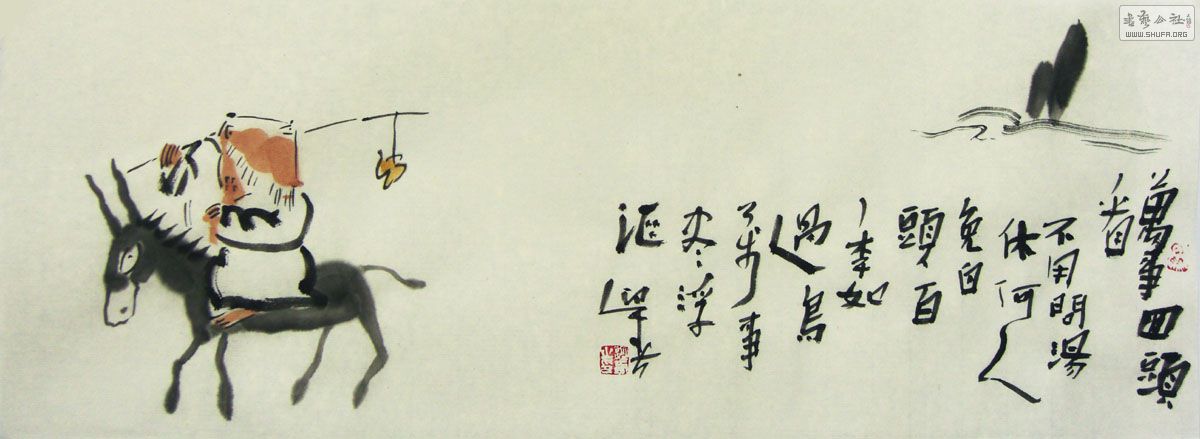 書藝公社
WWW.SHUFA.ORG
萬事回頭
看
不用問湯
休何人
免白
頭百
年如
過鳥
万事
尽浮
漚